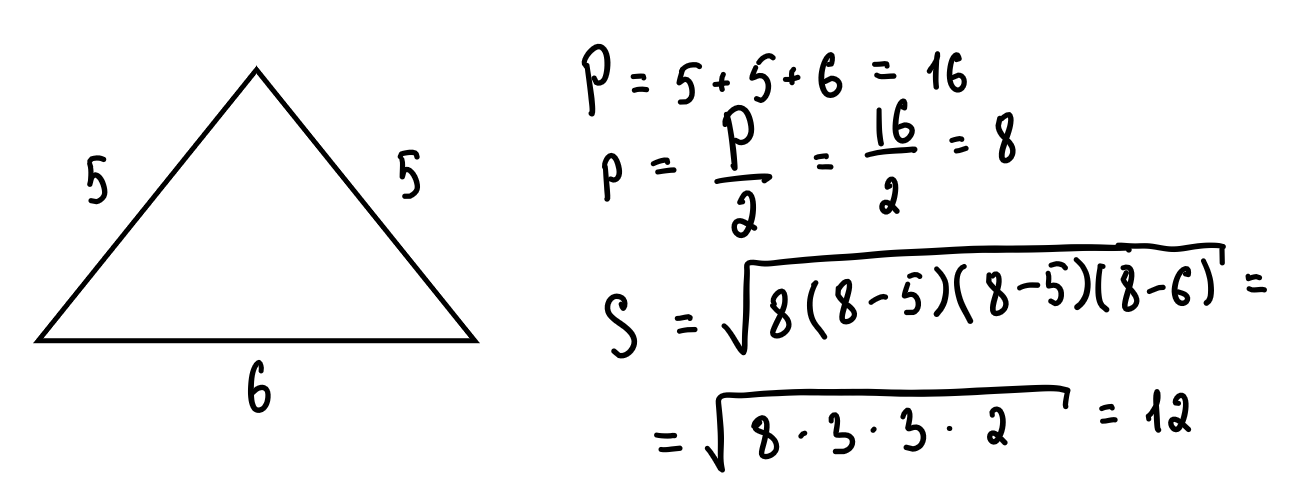 5
5
6
P = 5 + 5 + 6 = 16
p = P/2 = 16/2 = 8
S = √(8(8-5)(8-5)(8-6)) =
= √(8 · 3 · 3 · 2) = 12